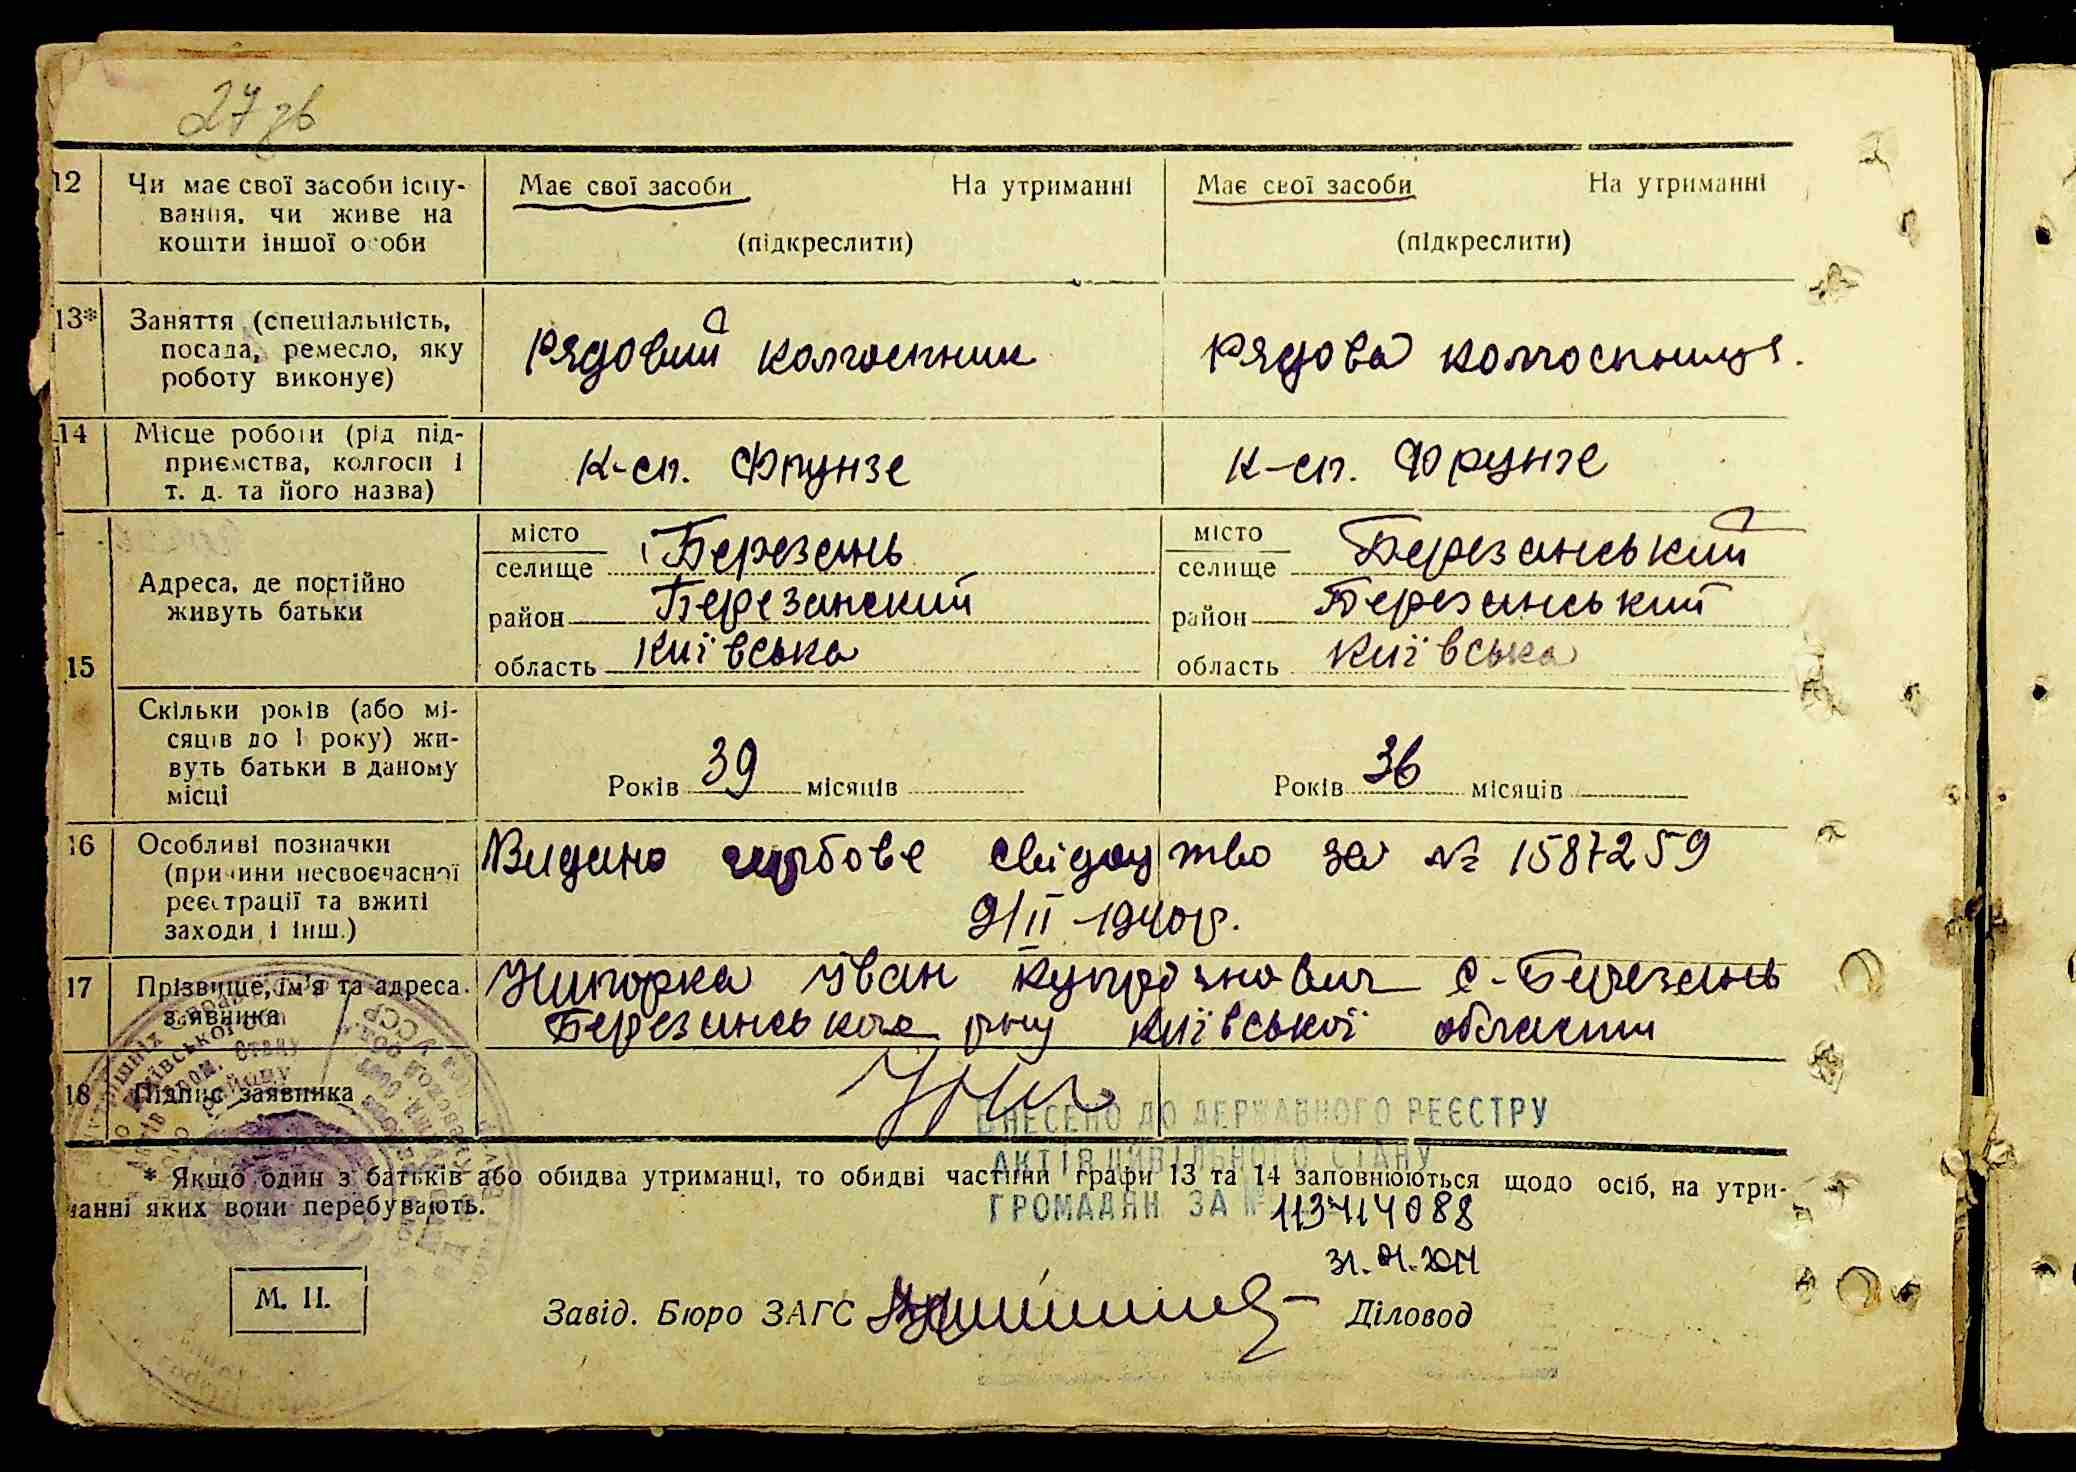 27 зв
12 Чи має свої засоби існу- Має свої засоби На утриманні Має свої засоби На утриманні
вання, чи живе на
кошти іншої особи (підкреслити) (підкреслити)
13* Заняття (спеціальність,
посада, ремесло, яку Рядовий колгоспник Рядова колгоспниця.
роботу виконує)
14 Місце роботи (рід під-
приємства, колгосп і К-сп. Фрунзе К-сп. Фрунзе
т. д. та його назва)
місто місто
селище Березань селище Березанський
15 Адреса, де постійно
живуть батьки район Березанский район Березанський
область Київська область Київська
Скільки років (або мі-
сяців до 1 року) жи-
вуть батьки в даному
місці Років 39 місяців Років 36 місяців
16 Особливі позначки Видано свідоцтво за № 1587259
(причини несвоєчасної
реєстрації та вжиті 9/II-1940р.
заходи і інш.)
17 Прізвище, ім'я та адреса Іван с-Березань
заявника Березанського р-ну Київської области
18 Підпис заявника
ВНЕСЕНО ДО ДЕРЖАВНОГО РЕЄСТРУ
АКТІВ ЦИВІЛЬНОГО СТАНУ
* Якщо один з батьків або обидва утриманці, то обидві частини графи 13 та 14 заповнюються щодо осіб, на утри-
манні яких вони перебувають.
ГРОМАДЯН ЗА № 113414088
М. П.
Завід. Бюро ЗАГС Діловод